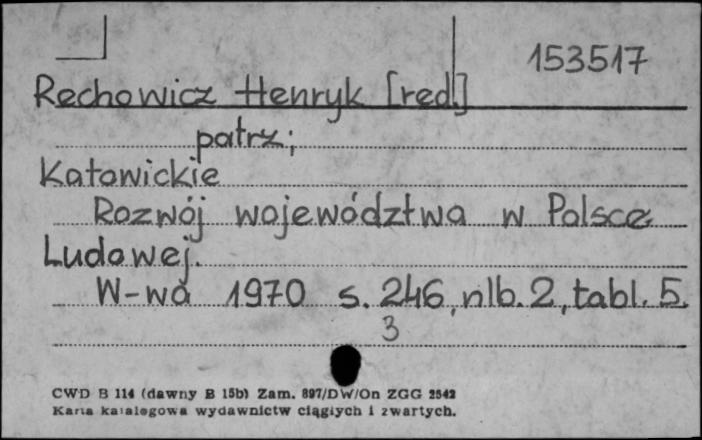 153517
Rechowicz Henryk [red.]
patrz;
Katowickie
Rozwój województwa w Polsce
Ludowej.
W-wa 1970 s. 246, nlb. 2, tabl. 5.
3
CWD B 114 (dawny B 15b) Zam. 897/DW/On ZGG 2542
Karta katalogowa wydawnictw ciągłych i zwartych.